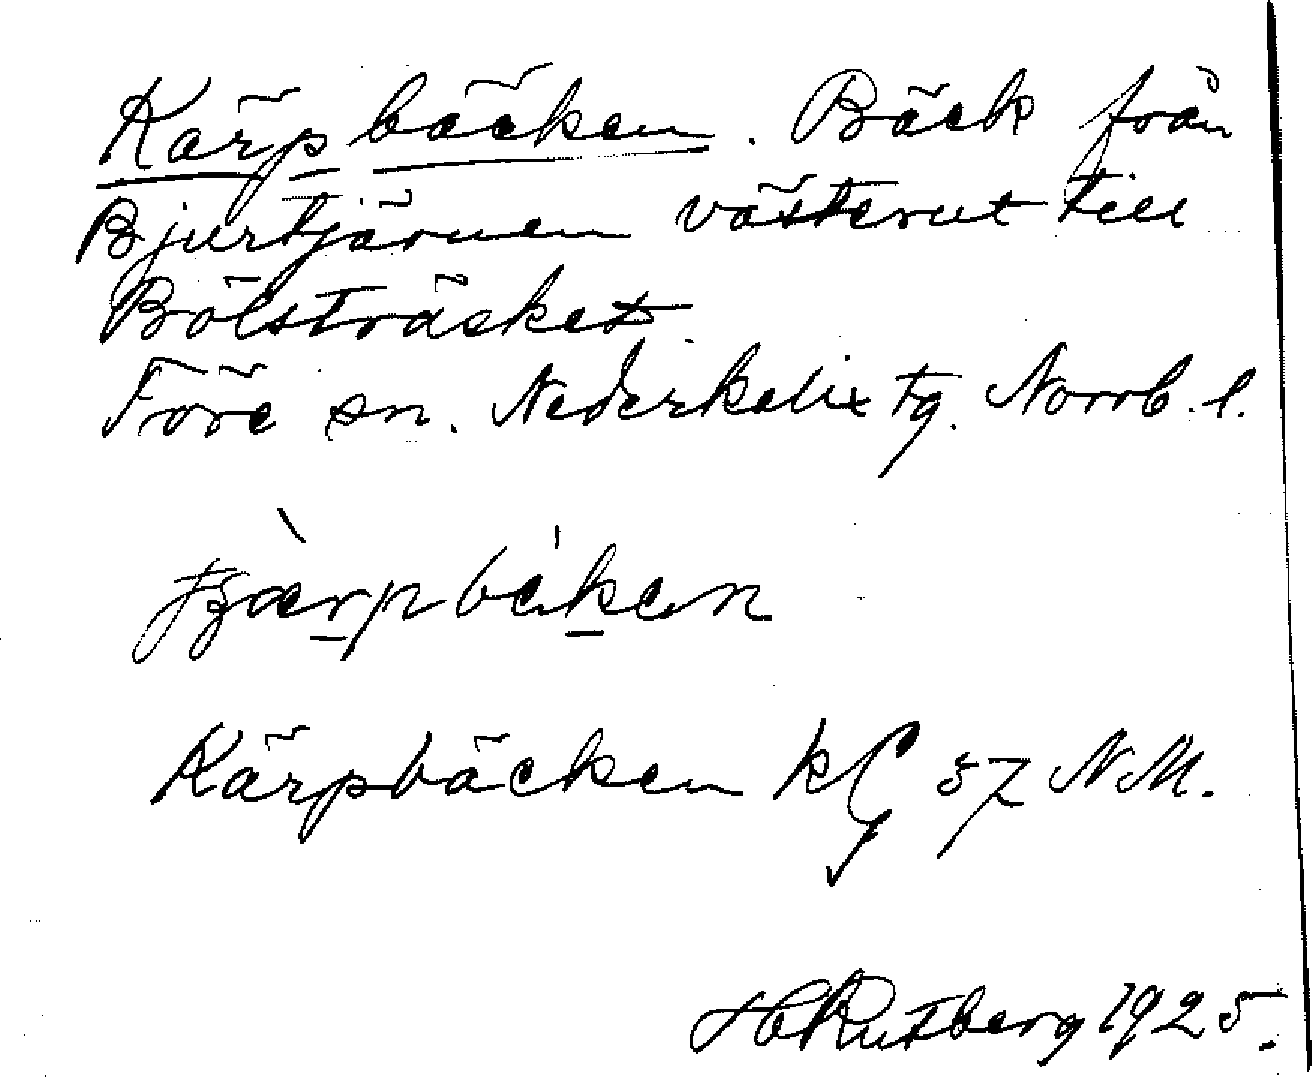 Kärpbäcken. Bäck från
Bjurtjärnen västerut till
Bölsträsket
Töre sn. Nederkalix tg. Norrb. l.
Kärpbäcken 57 N.M.
H Rutberg 1925.